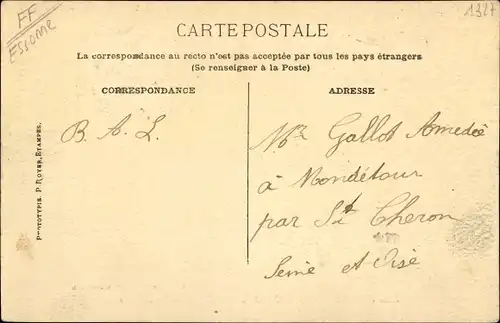 FF
ESSONNE
1327
CARTE POSTALE
La correspondance au recto n'est pas acceptée par tous les pays étrangers
(Se renseigner à la Poste)
CORRESPONDANCE
ADRESSE
B. A. L.
Mr Gallot Amedée
à Mondétour
par St Cheron
Seine et Oise
PHOTOTYPIE P. ROYER, ÉTAMPES.